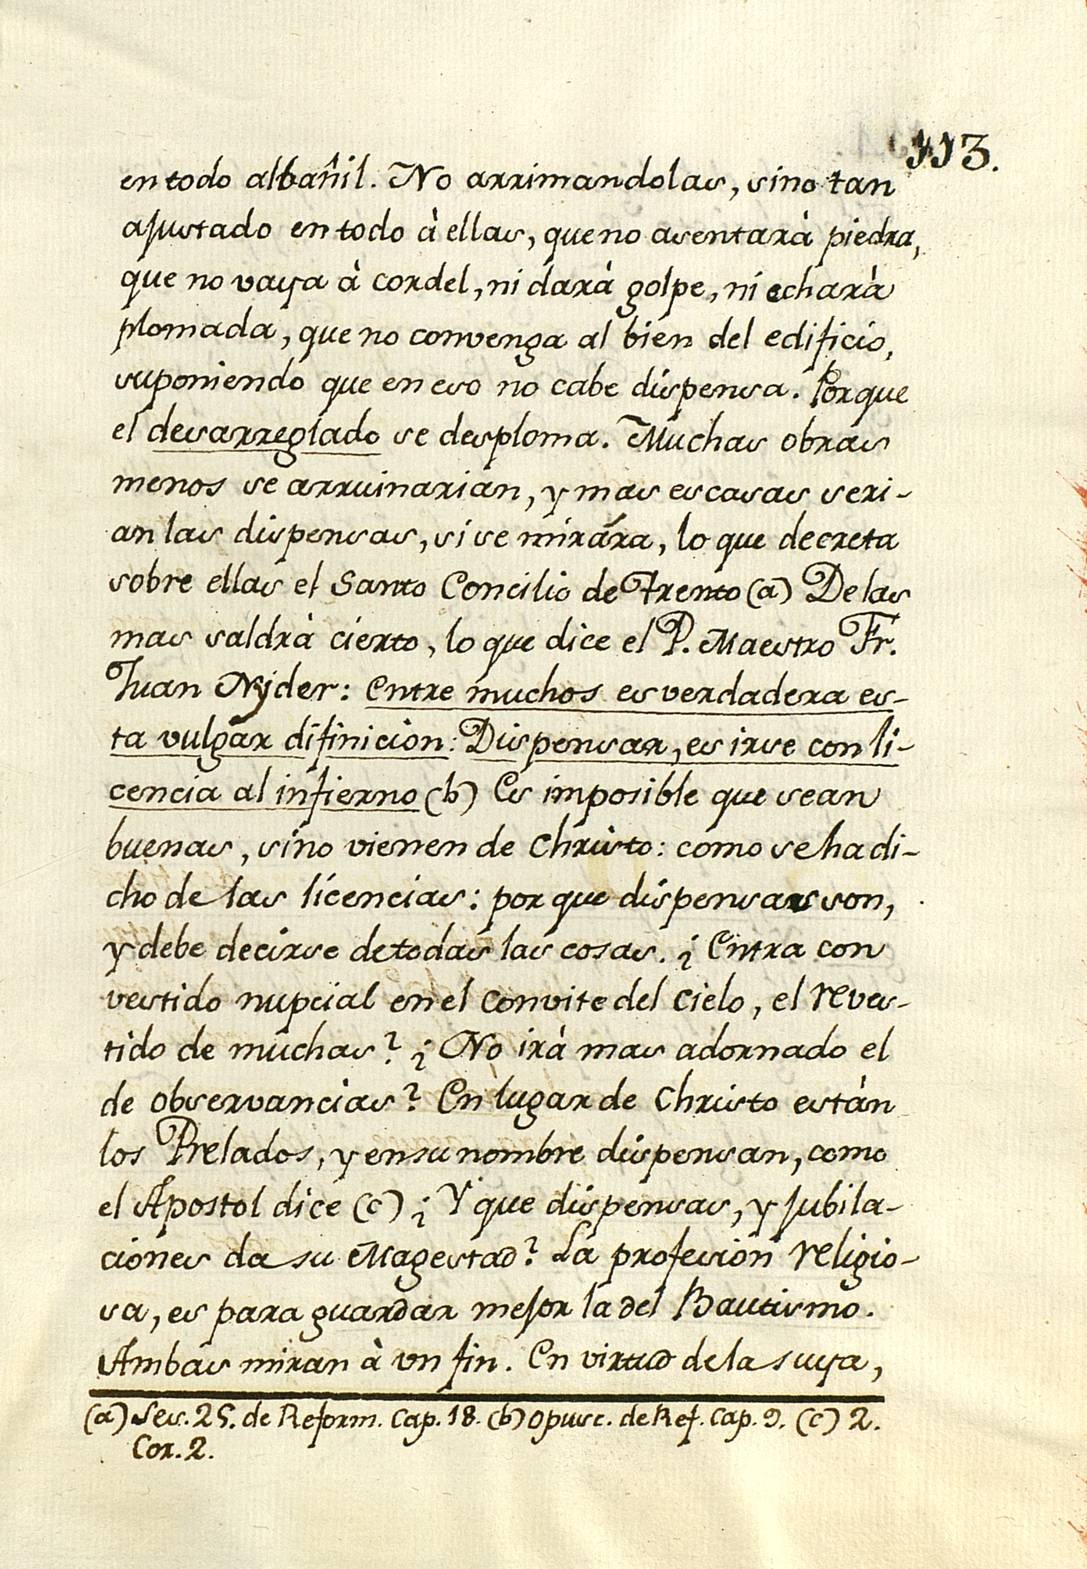 113.
en todo albañil. No arrimandolas, sino tan
ajustado en todo à ellas, que no asentarà piedra,
que no vaya à cordel, ni darà golpe, ni echarà
plomada, que no convenga al bien del edificio,
suponiendo que en eso no cabe dispensa. Porque
el desarreglado se desploma. Muchas obras
menos se arruinarian, y mas escasas seri-
an las dispensas, si se miràra, lo que decreta
sobre ellas el Santo Concilio de Trento (a) De las
mas saldrà cierto, lo que dice el P. Maestro Fr.
Juan Nyder: Entre muchos es verdadera es-
ta vulgar difinicion: Dispensar, es irse con li-
cencia al infierno (b) Es imposible que sean
buenas, sino vienen de Christo: como se ha di-
cho de las licencias: por que dispensas son,
y debe decirse de todas las cosas. ¿ Entra con
vestido nupcial en el convite del Cielo, el reves-
tido de muchas? ¿ No irà mas adornado el
de observancias? En lugar de Christo estàn
los Prelados, y en su nombre dispensan, como
el Apostol dice (c) ¿ Y que dispensas, y jubila-
ciones da su Magestad? La profesion religio-
sa, es para guardar mejor la del Bautismo.
Ambas miran à un fin. En virtud de la suya,
(a) Ses. 25. de Reform. Cap. 18. (b) Opusc. de Ref. Cap. 9. (c) 2.
Cor. 2.